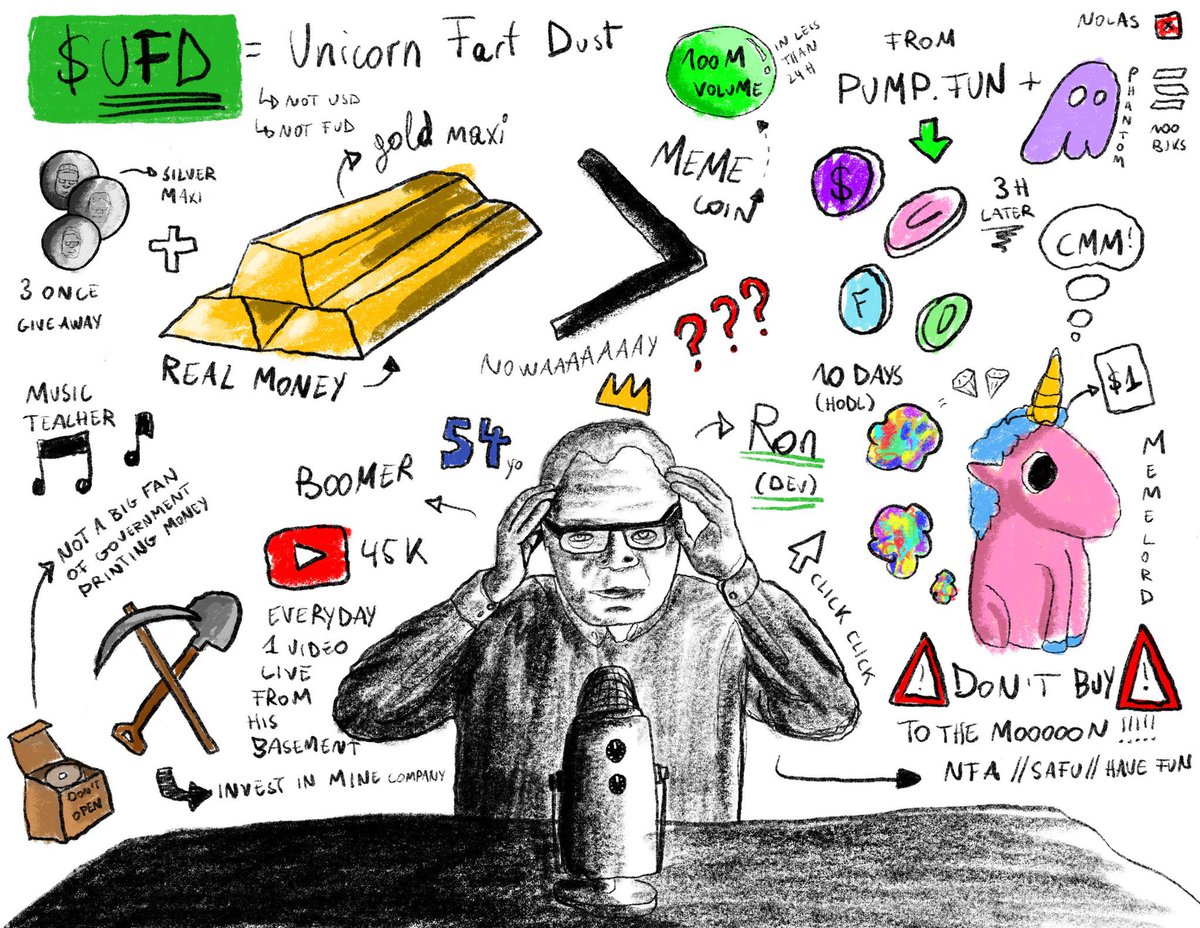 $UFD = Unicorn Fart Dust
NOT USD
NOT FUD
gold maxi
SILVER
MAXI
3 ONCE
GIVEAWAY
REAL MONEY
100M
VOLUME
IN LESS
THAN
24H
MEME
COIN
NOWAAAAAAAY
???
FROM
PUMP.FUN +
PHANTOM
NOLAS
100
BUKS
$
U
F
D
3H
LATER
CMM!
$1
10 DAYS
(HODL)
=
MEMELORD
MUSIC
TEACHER
NOT A BIG FAN
OF GOVERNMENT
PRINTING MONEY
BOOMER
54 yo
45K
EVERYDAY
1 VIDEO
LIVE
FROM
HIS
BASEMENT
INVEST IN MINE COMPANY
DON'T
OPEN
Ron
(DEV)
CLICK CLICK
! DON'T BUY !
TO THE MOOOOON !!!!!
NFA //SAFU// HAVE FUN